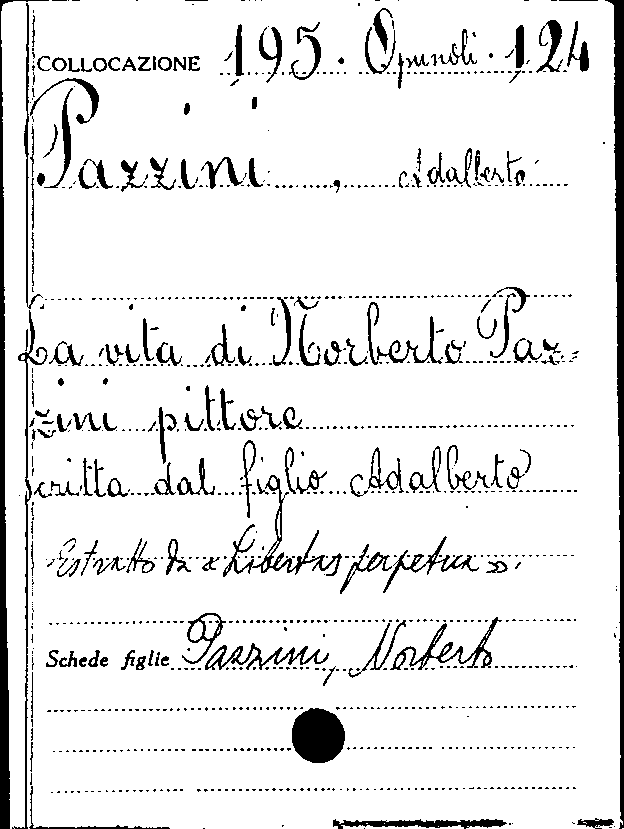 COLLOCAZIONE 195. Opuscoli. 124
Pazzini, Adalberto
La vita di Norberto Paz=
zini pittore
scritta dal figlio Adalberto
Estratto da « Libertas perpetua ».
Schede figlie Pazzini, Norberto